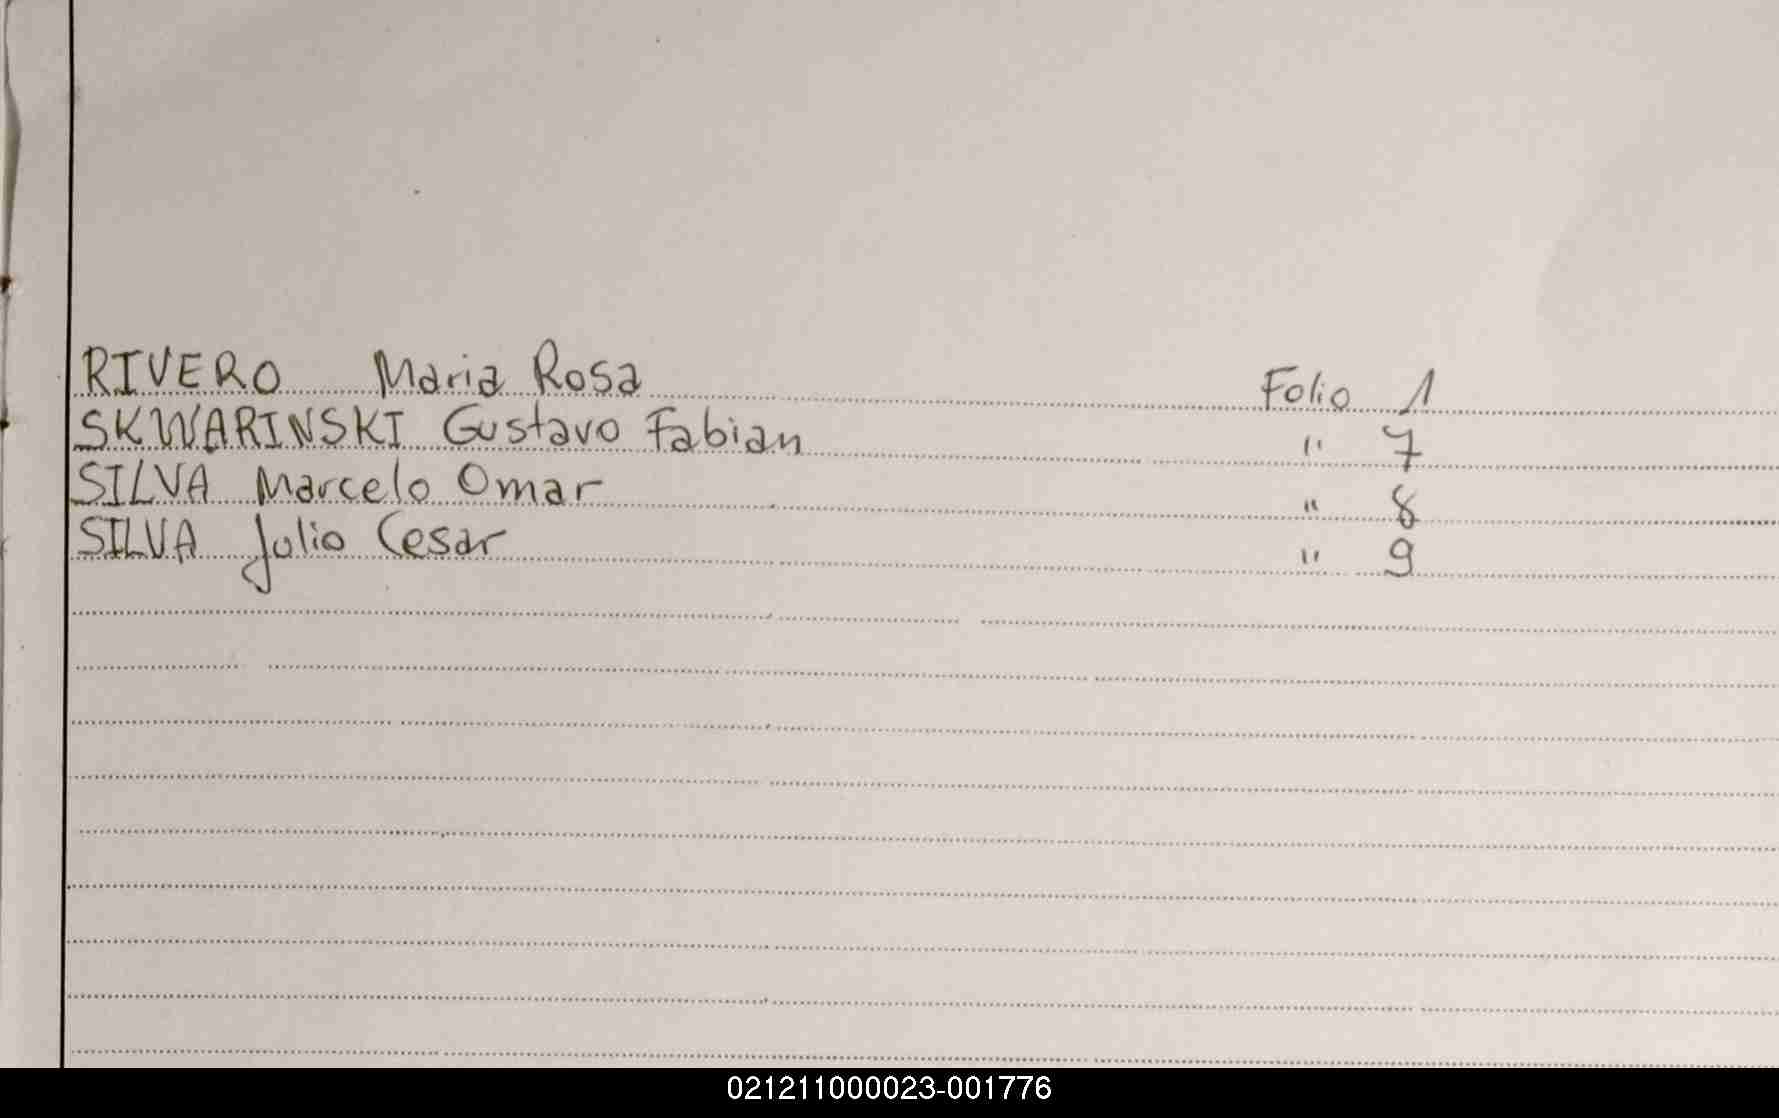 RIVERO Maria Rosa Folio 1
SKWARINSKI Gustavo Fabian " 7
SILVA Marcelo Omar " 8
SILVA Julio Cesar " 9
021211000023-001776